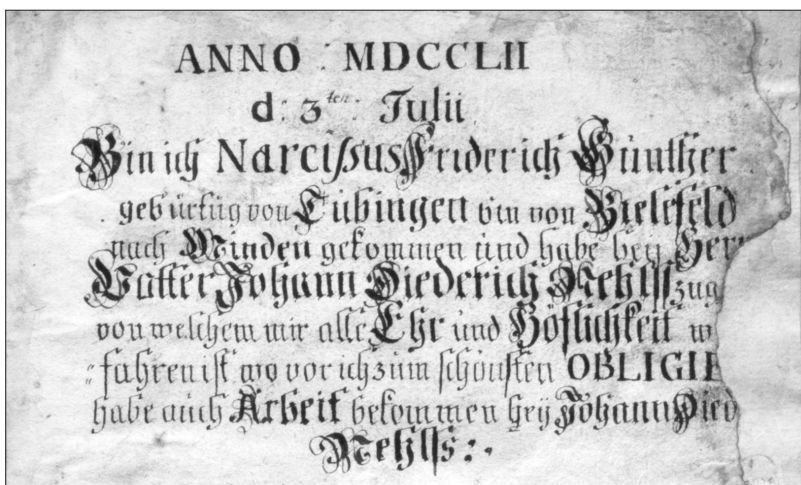 ANNO : MDCCLII
d: 3ten: Julii
Bin ich Narcissus Friderich Günther
gebürtüg von Tübingen bin von Bielefeld
nach Minden gekommen und habe beÿ Herr
Vatter Johann Diederich Nehlss zug
von welchem mir alle Ehr und Höflichkeit w
fahren ist wo vor ich zum schönsten OBLIGIE
habe auch Arbeit bekommen beÿ Johann Died
Nehlss :.